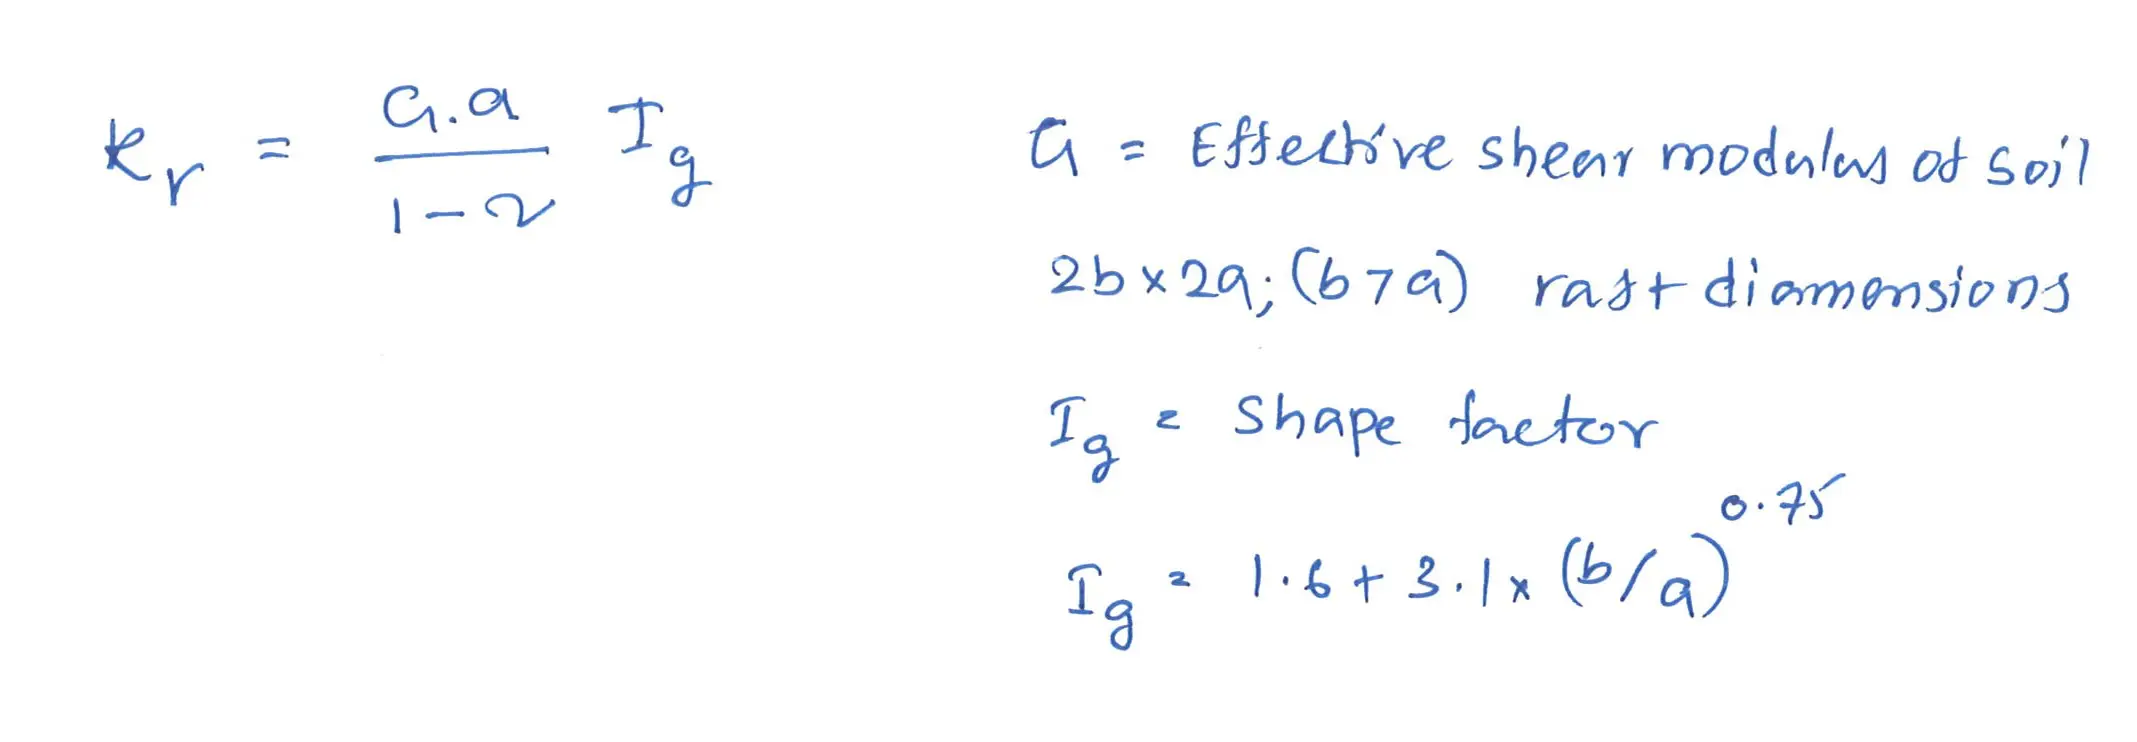 Kr = G.a / 1-ν Ig
G = Effective shear modulus of soil
2b x 2a; (b > a) raft diamensions
Ig = Shape factor
Ig = 1.6 + 3.1 x (b/a)^0.75